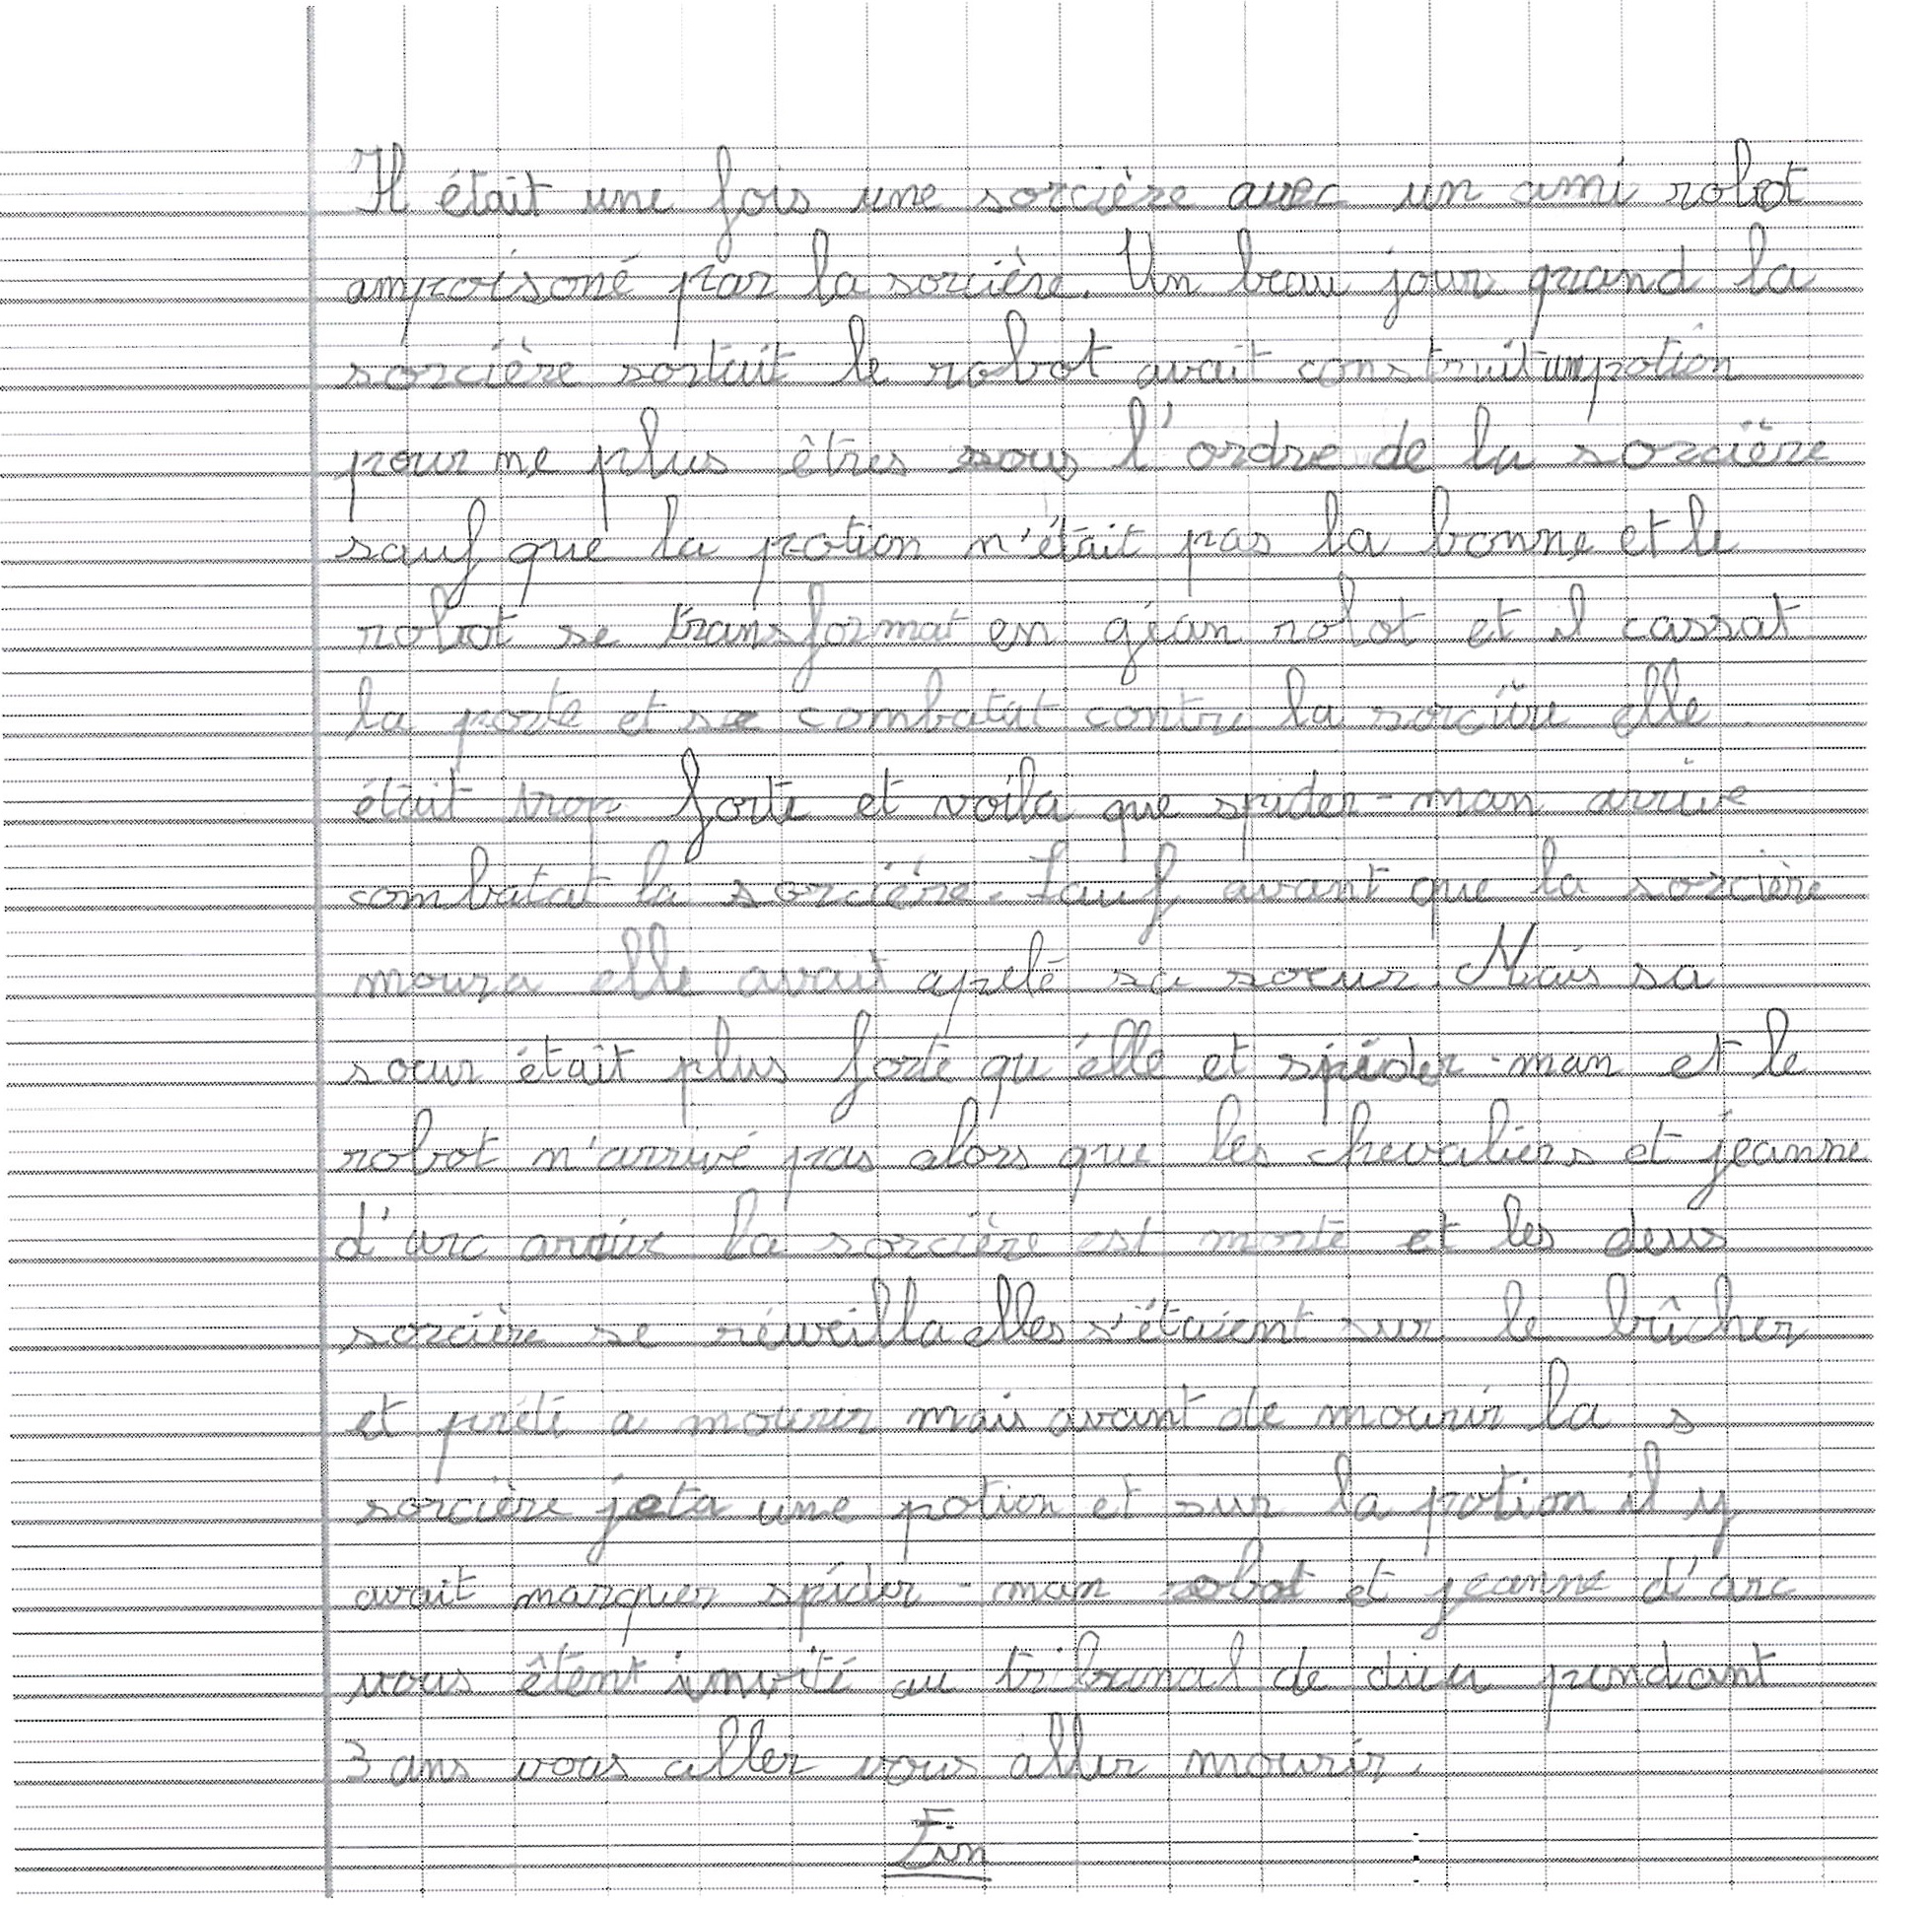 Il était une fois une sorcière avec un ami robot
ampoisoné par la sorcière. Un beau jour quand la
sorcière sortait le robot avait construit un potion
pour ne plus êtres sous l'ordre de la sorcière
sauf que la potion n'était pas la bonne et le
robot se transformat en géan robot et il cassat
la porte et se combatat contre la sorcière elle
était trop forte et voila que spider-man arrive
combatat la sorcière. Sauf avant que la sorcière
moura elle avait apelé sa soeur. Mais sa
soeur était plus forte qu'elle et spider-man et le
robot n'arrivé pas alors que les chevaliers et jeanne
d'arc arrive la sorcière est morte et les deux
sorcière se réveilla elles s'étaient sur le bûcher
et prête a mourir mais avant de mourir la s
sorcière jeta une potion et sur la potion il y
avait marquer spider-man robot et jeanne d'arc
vous êtent invité au tribunal de dieu pendant
3 ans vous aller vous aller mourir.
Fin